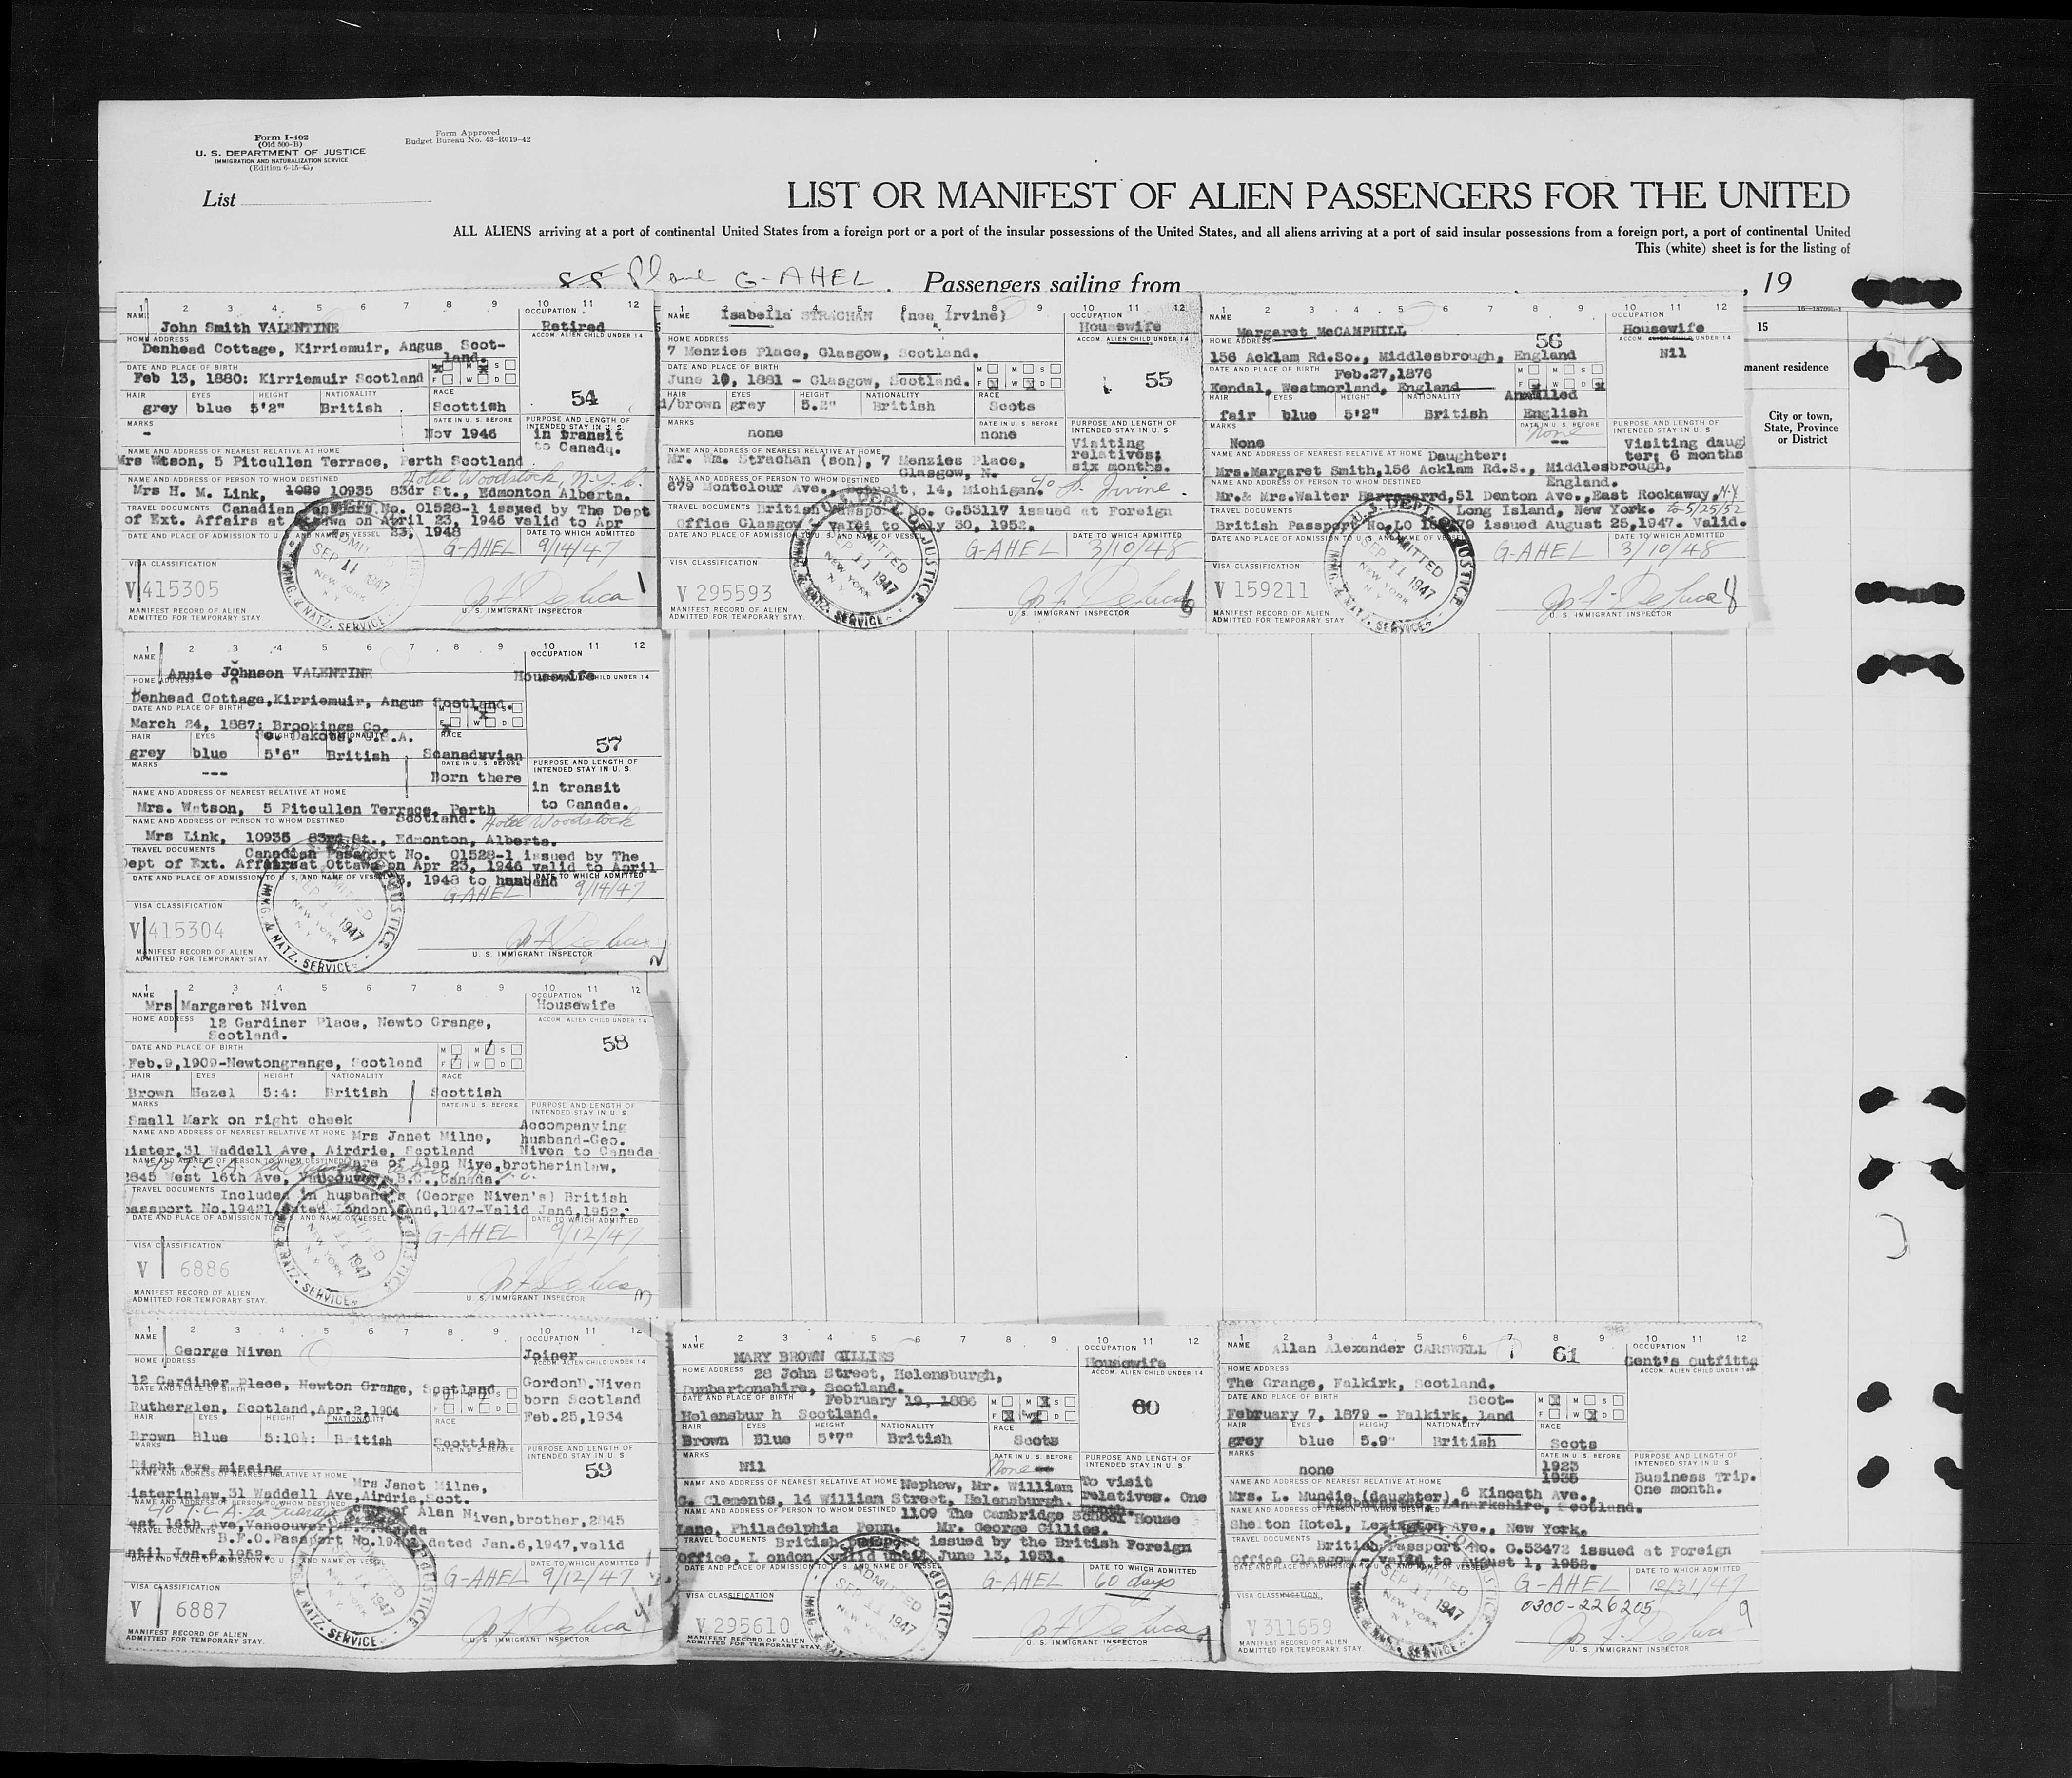 Form I-402
(Old 500-B)
U. S. DEPARTMENT OF JUSTICE
IMMIGRATION AND NATURALIZATION SERVICE
(Edition 6-15-45)
Form Approved
Budget Bureau No. 43-R019-42
List
LIST OR MANIFEST OF ALIEN PASSENGERS FOR THE UNITED
ALL ALIENS arriving at a port of continental United States from a foreign port or a port of the insular possessions of the United States, and all aliens arriving at a port of said insular possessions from a foreign port, a port of continental United
This (white) sheet is for the listing of
SS Plane G-AHEL. Passengers sailing from , 19
15
manent residence
City or town,
State, Province
or District
1 2 3 4 5 6 7 8 9 10 11 12
NAME John Smith VALENTINE
OCCUPATION Retired
HOME ADDRESS
ACCOM. ALIEN CHILD UNDER 14
Denhead Cottage, Kirriemuir, Angus Scot-
land.
DATE AND PLACE OF BIRTH M M S
Feb 13, 1880: Kirriemuir Scotland F W D
54
HAIR EYES HEIGHT NATIONALITY RACE
grey blue 5'2" British Scottish
MARKS DATE IN U. S. BEFORE PURPOSE AND LENGTH OF INTENDED STAY IN U. S.
- Nov 1946 in transit
to Canada.
NAME AND ADDRESS OF NEAREST RELATIVE AT HOME
Mrs Watson, 5 Pitcullen Terrace, Perth Scotland
NAME AND ADDRESS OF PERSON TO WHOM DESTINED Hotel Woodstock, N.Y.C.
Mrs H. M. Link, 1099 10935 83dr St., Edmonton Alberta.
TRAVEL DOCUMENTS Canadian Passport No. 01528-1 issued by The Dept
of Ext. Affairs at Ottawa on April 23, 1946 valid to Apr
23, 1948
DATE AND PLACE OF ADMISSION TO U. S. AND NAME OF VESSEL DATE TO WHICH ADMITTED
G-AHEL 9/14/47
VISA CLASSIFICATION
V 415305
ADMITTED SEP 11 1947 NEW YORK N Y
IMMG. & NATZ. SERVICE
MANIFEST RECORD OF ALIEN
ADMITTED FOR TEMPORARY STAY
U. S. IMMIGRANT INSPECTOR
1
1 2 3 4 5 6 7 8 9 10 11 12
NAME Isabella STRACHAN (nee Irvine)
OCCUPATION Housewife
HOME ADDRESS
ACCOM. ALIEN CHILD UNDER 14
7 Menzies Place, Glasgow, Scotland.
DATE AND PLACE OF BIRTH M M S
June 10, 1881 - Glasgow, Scotland. F W D
55
HAIR EYES HEIGHT NATIONALITY RACE
/brown grey 5.2" British Scots
MARKS DATE IN U. S. BEFORE PURPOSE AND LENGTH OF INTENDED STAY IN U. S.
none none Visiting
relatives;
six months.
NAME AND ADDRESS OF NEAREST RELATIVE AT HOME
Mr. Wm. Strachan (son), 7 Menzies Place,
Glasgow, N.
NAME AND ADDRESS OF PERSON TO WHOM DESTINED
679 Montclour Ave., Detroit, 14, Michigan. Irvine.
TRAVEL DOCUMENTS British Passport No. G.53117 issued at Foreign
Office Glasgow valid to July 30, 1952.
DATE AND PLACE OF ADMISSION TO U. S. AND NAME OF VESSEL DATE TO WHICH ADMITTED
G-AHEL 3/10/48
VISA CLASSIFICATION
V 295593
U. S. DEPT. OF JUSTICE
ADMITTED SEP 11 1947 NEW YORK N Y
IMMG. & NATZ. SERVICE
MANIFEST RECORD OF ALIEN
ADMITTED FOR TEMPORARY STAY
U. S. IMMIGRANT INSPECTOR
6
1 2 3 4 5 6 7 8 9 10 11 12
NAME Margaret McCAMPHILL
OCCUPATION Housewife
56
HOME ADDRESS
ACCOM. ALIEN CHILD UNDER 14
156 Acklam Rd.So., Middlesbrough, England
Nil
DATE AND PLACE OF BIRTH Feb.27,1876 M M S
Kendal, Westmorland, England F W D
HAIR EYES HEIGHT NATIONALITY RACE
fair blue 5'2" British English
MARKS DATE IN U. S. BEFORE PURPOSE AND LENGTH OF INTENDED STAY IN U. S.
None none -- Visiting daug
ter; 6 months
NAME AND ADDRESS OF NEAREST RELATIVE AT HOME Daughter:
Mrs.Margaret Smith,156 Acklam Rd.S., Middlesbrough,
England.
NAME AND ADDRESS OF PERSON TO WHOM DESTINED
Mr.& Mrs.Walter 51 Denton Ave.,East Rockaway, N.Y
Long Island, New York. to 5/25/52
TRAVEL DOCUMENTS
British Passport No.LO issued August 25,1947. Valid.
DATE AND PLACE OF ADMISSION TO U. S. AND NAME OF VESSEL DATE TO WHICH ADMITTED
G-AHEL 3/10/48
VISA CLASSIFICATION
V 159211
U. S. DEPT. OF JUSTICE
ADMITTED SEP 11 1947 NEW YORK N Y
IMMG. & NATZ. SERVICE
MANIFEST RECORD OF ALIEN
ADMITTED FOR TEMPORARY STAY
U. S. IMMIGRANT INSPECTOR
8
1 2 3 4 5 6 7 8 9 10 11 12
NAME Annie Johnson VALENTINE
OCCUPATION Housewife
HOME ADDRESS
ACCOM. ALIEN CHILD UNDER 14
Denhead Cottage,Kirriemuir, Angus Scotland.
DATE AND PLACE OF BIRTH M M S
March 24, 1887: Brookings Co. F W D
So. Dakota, U.S.A.
57
HAIR EYES HEIGHT NATIONALITY RACE
grey blue 5'6" British Scanadavian
MARKS DATE IN U. S. BEFORE PURPOSE AND LENGTH OF INTENDED STAY IN U. S.
--- Born there in transit
to Canada.
NAME AND ADDRESS OF NEAREST RELATIVE AT HOME
Mrs. Watson, 5 Pitcullen Terrace, Perth
Scotland. Hotel Woodstock
NAME AND ADDRESS OF PERSON TO WHOM DESTINED
Mrs Link, 10935 83rd St., Edmonton, Alberta.
TRAVEL DOCUMENTS Canadian Passport No. 01528-1 issued by The
Dept of Ext. Affairsat Ottawa on Apr 23, 1946 valid to April
3, 1948 to husband
DATE AND PLACE OF ADMISSION TO U. S. AND NAME OF VESSEL DATE TO WHICH ADMITTED
G-AHEL 9/14/47
VISA CLASSIFICATION
V 415304
ADMITTED 1947 NEW YORK N Y
IMMG. & NATZ. SERVICE
MANIFEST RECORD OF ALIEN
ADMITTED FOR TEMPORARY STAY
U. S. IMMIGRANT INSPECTOR
2
1 2 3 4 5 6 7 8 9 10 11 12
NAME Mrs Margaret Niven
OCCUPATION Housewife
HOME ADDRESS 12 Gardiner Place, Newto Grange,
Scotland.
ACCOM. ALIEN CHILD UNDER 14
58
DATE AND PLACE OF BIRTH M M S
Feb.9,1909-Newtongrange, Scotland F W D
HAIR EYES HEIGHT NATIONALITY RACE
Brown Hazel 5:4: British Scottish
MARKS DATE IN U. S. BEFORE PURPOSE AND LENGTH OF INTENDED STAY IN U. S.
Small Mark on right cheek
Accompanying
husband-Geo.
Niven to Canada
NAME AND ADDRESS OF NEAREST RELATIVE AT HOME Mrs Janet Milne,
sister,31 Waddell Ave, Airdrie, Scotland
NAME AND ADDRESS OF PERSON TO WHOM DESTINED care of Alan Nive,brotherinlaw,
2845 West 16th Ave, Vancouver, B.C.,Canada.
TRAVEL DOCUMENTS Included in husband's (George Niven's) British
passport No.19421, dated London,Jan6,1947-Valid Jan6,1952.
DATE AND PLACE OF ADMISSION TO U. S. AND NAME OF VESSEL DATE TO WHICH ADMITTED
G-AHEL 9/12/47
VISA CLASSIFICATION
V 6886
ADMITTED 11 1947 NEW YORK N Y
IMMG. & NATZ. SERVICE
MANIFEST RECORD OF ALIEN
ADMITTED FOR TEMPORARY STAY.
U. S. IMMIGRANT INSPECTOR
3
1 2 3 4 5 6 7 8 9 10 11 12
NAME George Niven
OCCUPATION Joiner
HOME ADDRESS
ACCOM. ALIEN CHILD UNDER 14
12 Gardiner Place, Newton Grange, Scotland
GordonD.Niven
born Scotland
Feb.25,1934
DATE AND PLACE OF BIRTH M M S
Rutherglen, Scotland,Apr.2,1904 F W D
HAIR EYES HEIGHT NATIONALITY RACE
Brown Blue 5:10½: British Scottish
MARKS DATE IN U. S. BEFORE PURPOSE AND LENGTH OF INTENDED STAY IN U. S.
Right eye missing
59
NAME AND ADDRESS OF NEAREST RELATIVE AT HOME Mrs Janet Milne,
isterinlaw,31 Waddell Ave,Airdrie,Scot.
NAME AND ADDRESS OF PERSON TO WHOM DESTINED
c/o T.C.A. La Guardia care of Alan Niven,brother,2845
est 16th Ave,Vancouver, Canada
TRAVEL DOCUMENTS B.F.O.Passport No.19421,dated Jan.6,1947,valid
until Jan.6,1952.
DATE AND PLACE OF ADMISSION TO U. S. AND NAME OF VESSEL DATE TO WHICH ADMITTED
G-AHEL 9/12/47
VISA CLASSIFICATION
V 6887
ADMITTED 11 1947 NEW YORK N Y
IMMG. & NATZ. SERVICE
MANIFEST RECORD OF ALIEN
ADMITTED FOR TEMPORARY STAY.
U. S. IMMIGRANT INSPECTOR
1 2 3 4 5 6 7 8 9 10 11 12
NAME MARY BROWN GILLIES
OCCUPATION Housewife
HOME ADDRESS 28 John Street, Helensburgh,
Dumbartonshire, Scotland.
ACCOM. ALIEN CHILD UNDER 14
DATE AND PLACE OF BIRTH February 19, 1886 M M S
Helensbur h Scotland. F W D
60
HAIR EYES HEIGHT NATIONALITY RACE
Brown Blue 5'7" British Scots
MARKS DATE IN U. S. BEFORE PURPOSE AND LENGTH OF INTENDED STAY IN U. S.
Nil None
To visit
relatives. One
month.
NAME AND ADDRESS OF NEAREST RELATIVE AT HOME Nephew, Mr. William
G. Clements, 14 William Street, Helensburgh.
NAME AND ADDRESS OF PERSON TO WHOM DESTINED 1109 The Cambridge School House
Lane, Philadelphia Penn. Mr. George Gillies.
TRAVEL DOCUMENTS British Passport issued by the British Foreign
Office, L ondon, valid until June 13, 1951.
DATE AND PLACE OF ADMISSION TO U. S. AND NAME OF VESSEL DATE TO WHICH ADMITTED
G-AHEL 60 days
VISA CLASSIFICATION
V 295610
ADMITTED SEP 11 1947 NEW YORK
MANIFEST RECORD OF ALIEN
ADMITTED FOR TEMPORARY STAY
U. S. IMMIGRANT INSPECTOR
1 2 3 4 5 6 7 8 9 10 11 12
NAME Allan Alexander CARSWELL
61
OCCUPATION Gent's Outfitte
HOME ADDRESS
ACCOM. ALIEN CHILD UNDER 14
The Grange, Falkirk, Scotland.
DATE AND PLACE OF BIRTH Scot- M M S
February 7, 1879 - Falkirk, land F W D
HAIR EYES HEIGHT NATIONALITY RACE
grey blue 5.9" British Scots
MARKS DATE IN U. S. BEFORE PURPOSE AND LENGTH OF INTENDED STAY IN U. S.
none 1923
1935
Business Trip.
One month.
NAME AND ADDRESS OF NEAREST RELATIVE AT HOME
Mrs. L. Mundie (daughter) 6 Kincath Ave.,
Lanarkshire, Scotland.
NAME AND ADDRESS OF PERSON TO WHOM DESTINED
Shelton Hotel, Lexington Ave., New York.
TRAVEL DOCUMENTS British Passport No. G.53472 issued at Foreign
Office Glasgow - valid to August 1, 1952.
DATE AND PLACE OF ADMISSION TO U. S. AND NAME OF VESSEL DATE TO WHICH ADMITTED
G-AHEL 10/31/47
0300-226205
VISA CLASSIFICATION
V 311659
ADMITTED SEP 11 1947 NEW YORK N Y
IMMG. & NATZ. SERVICE
MANIFEST RECORD OF ALIEN
ADMITTED FOR TEMPORARY STAY
U. S. IMMIGRANT INSPECTOR
9